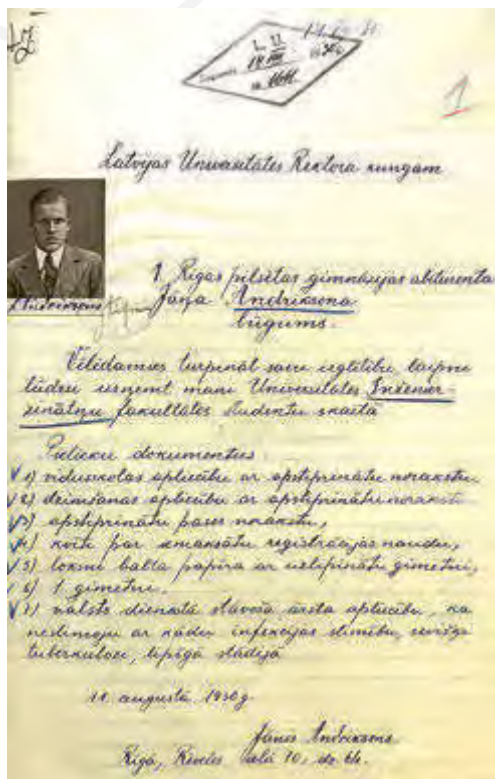 1
L. U.
Latvijas Universitātes Rektora kungam
1. Rīgas pilsētas ģimnāzijas abiturienta
Jāņa Andriksona
lūgums.
Vēlēdamies turpināt savu izglītību, laipni
lūdzu uzņemt mani Universitātes Inženier-
zinātņu fakultātes studentu skaitā
Pielieku dokumentus:
1) vidusskolas apliecību ar apstiprinātu norakstu
2) dzimšanas apliecību ar apstiprinātu norakstu
3) apstiprinātu pases norakstu,
4) kvīti par iemaksātu reģistrācijas naudu,
5) loksni balta papīra ar uzlīpinātu ģīmetni,
6) 1 ģīmetni,
7) valsts dienestā stāvoša ārsta apliecību, ka
neslimoju ar kādu infekcijas slimību, sevišķi
tuberkulozi, lipīgā stādijā
augustā 1930 g.
Jānis Andriksons
Rīgā, ielā 10, dz.